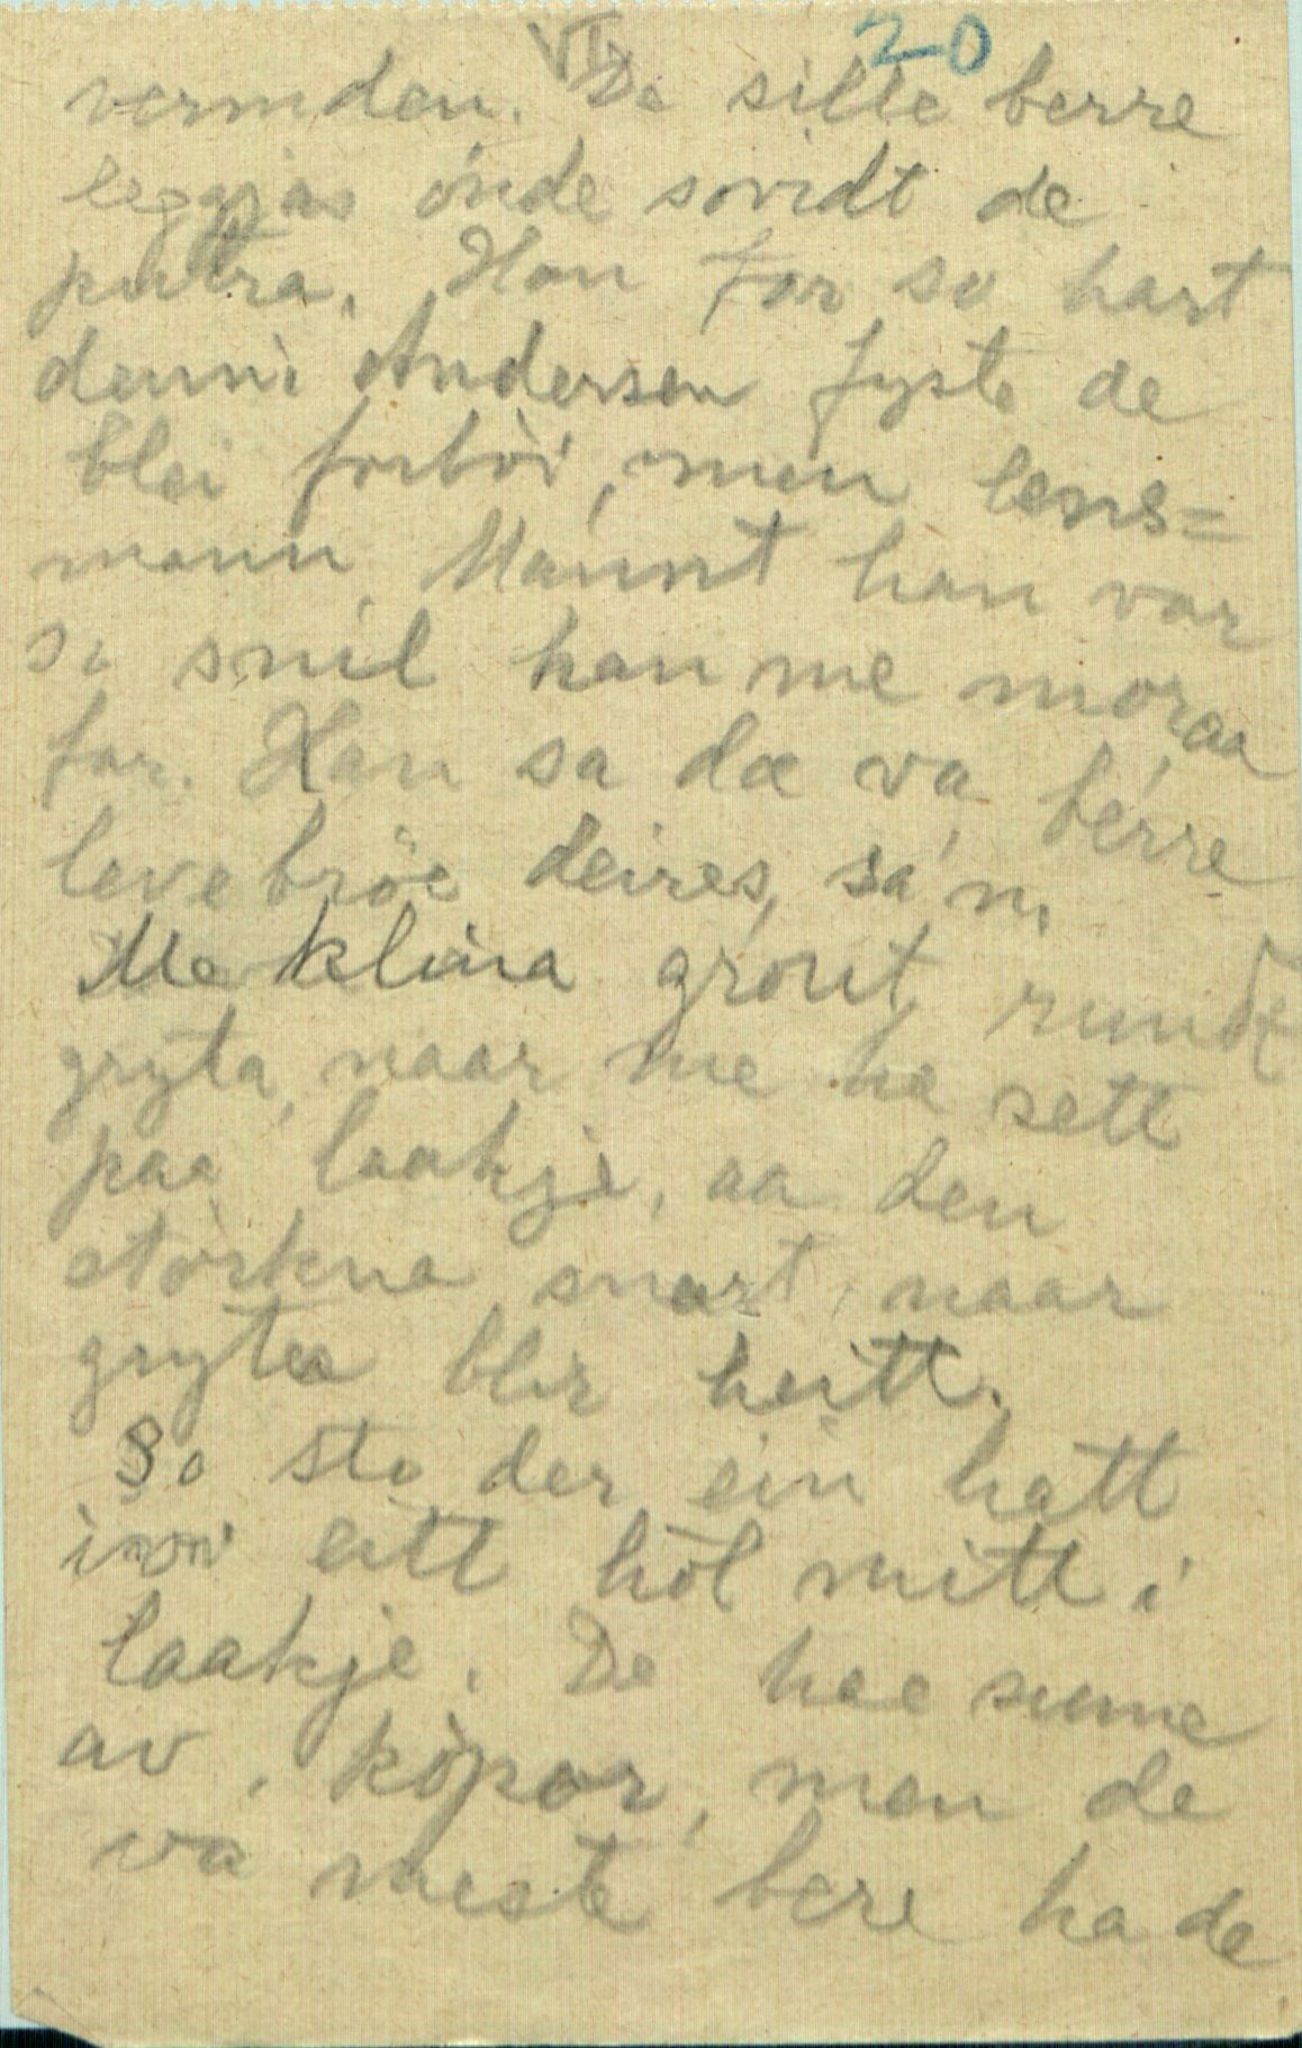 VI 20
vermden. De sille berre
leggjas onde sovidt de
putra. Han for so hart
denni Andersen fyste de
blei forbòi, men lens=
mann Maunt han var
so snil han me moraa
far. Han sa dæ va berre
levebröe deires, sa'n.
Me klina grout, rundt
gryta, naar me he sett
paa laakje, aa den
storkna snart, naar
gryta blir heitt.
So sto der ein hatt
ivvi eitt hòl mitt i
laakje. De hae sume
av kòpar, men de
va meste bere ha de